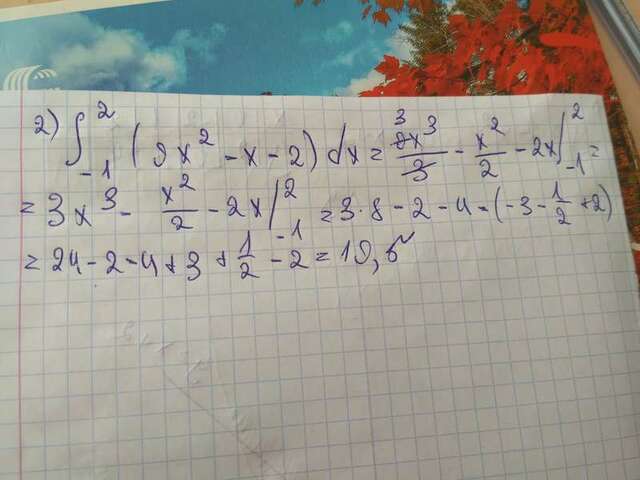 2) ∫₋₁² (9x² - x - 2) dx = 9x³/3 3 - x²/2 - 2x |₋₁² =
= 3x³ - x²/2 - 2x |₋₁² = 3·8 - 2 - 4 - (-3 - 1/2 + 2)
= 24 - 2 - 4 + 3 + 1/2 - 2 = 19,5